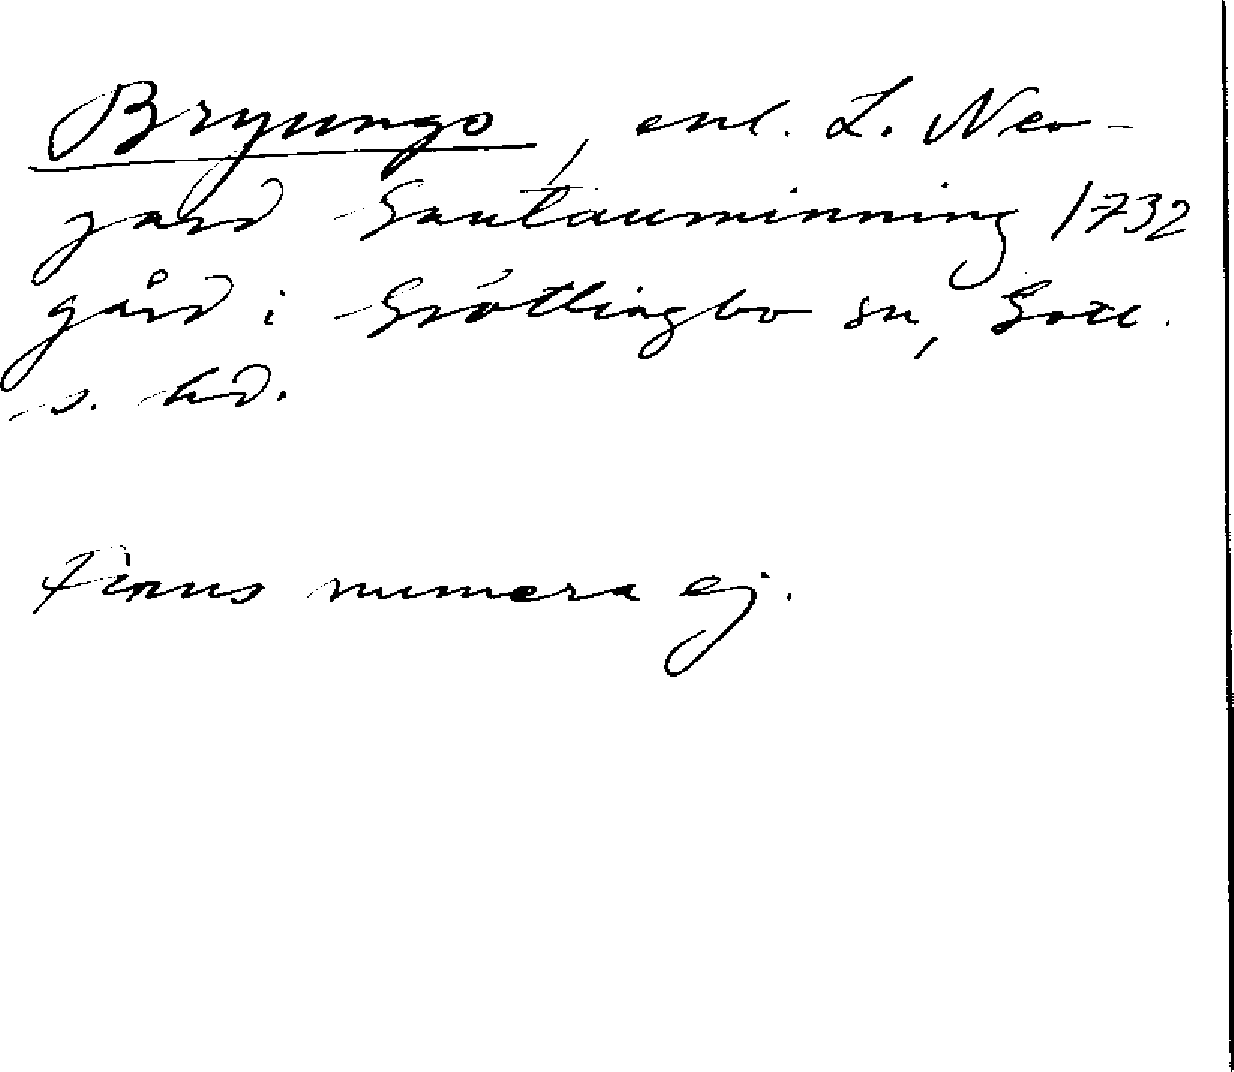 Bryungs, enl. L. Neo-
gard Gautauminning 1732
gård i Grötlingbo sn, Gotl.
s. hd.
Finns numera ej.